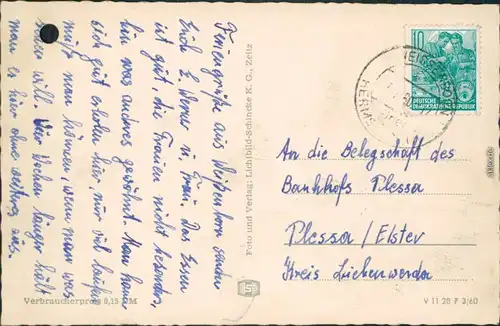 Feriengrüße aus Weißenborn senden
Erich E. Werner u. Frau. Das Essen
ist gut, die Frauen nicht besonders,
bin was anderes gewöhnt. Man kann
sich gut erholen hier, nur viel laufen
muß man können, wenn man was
sehen will. Vier Wochen länger hält
man es hier ohne weiteres aus.
Foto und Verlag: Lichtbild-Schincke K. G., Zeitz
Verbraucherpreis 0,15 DM
10
DEUTSCHE
DEMOKRATISCHE REPUBLIK
An die Belegschaft des
Bankhofs Plessa
Plessa/Elster
Kreis Liebenwerda
V 11 28 P 3/60